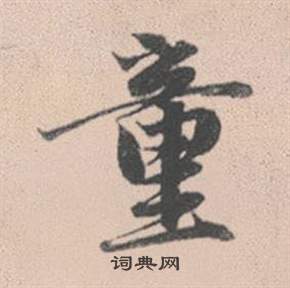 童
词典网